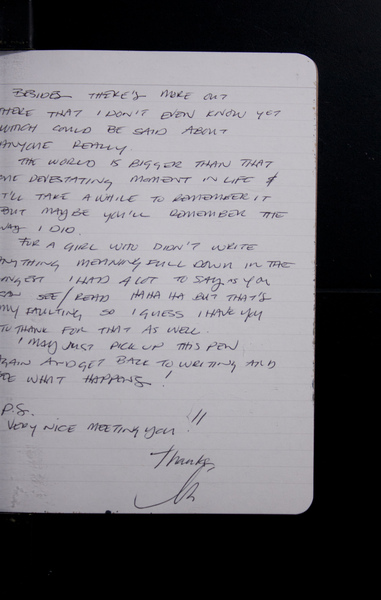 BESIDES THERE'S MORE OUT
THERE THAT I DON'T EVEN KNOW YET
WHICH COULD BE SAID ABOUT
ANYONE REALLY.
THE WORLD IS BIGGER THAN THAT
ONE DEVESTATING MOMENT IN LIFE &
IT'LL TAKE A WHILE TO REMEMBER IT
BUT MAYBE YOU'LL REMEMBER THE
WAY I DID.
FOR A GIRL WHO DIDN'T WRITE
ANYTHING MEANINGFULL DOWN IN THE
LONGEST I HAD A LOT TO SAY AS YOU
CAN SEE/READ HAHA HA BUT THAT'S
MY FAULTING SO I GUESS I HAVE YOU
TO THANK FOR THAT AS WELL.
I MAY JUST PICK UP THIS PEN
AGAIN AND GET BACK TO WRITING AND
SEE WHAT HAPPENS!
P.S.
VERY NICE MEETING YOU!!
Thanks,